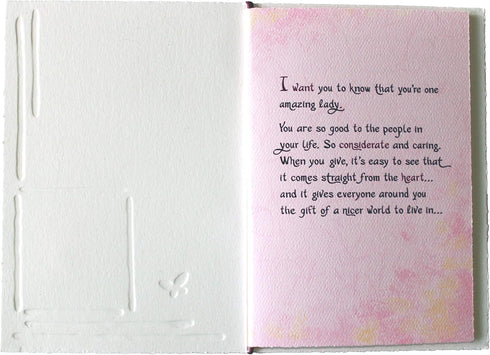 I want you to know that you're one
amazing lady.
You are so good to the people in
your life. So considerate and caring.
When you give, it's easy to see that
it comes straight from the heart...
and it gives everyone around you
the gift of a nicer world to live in...